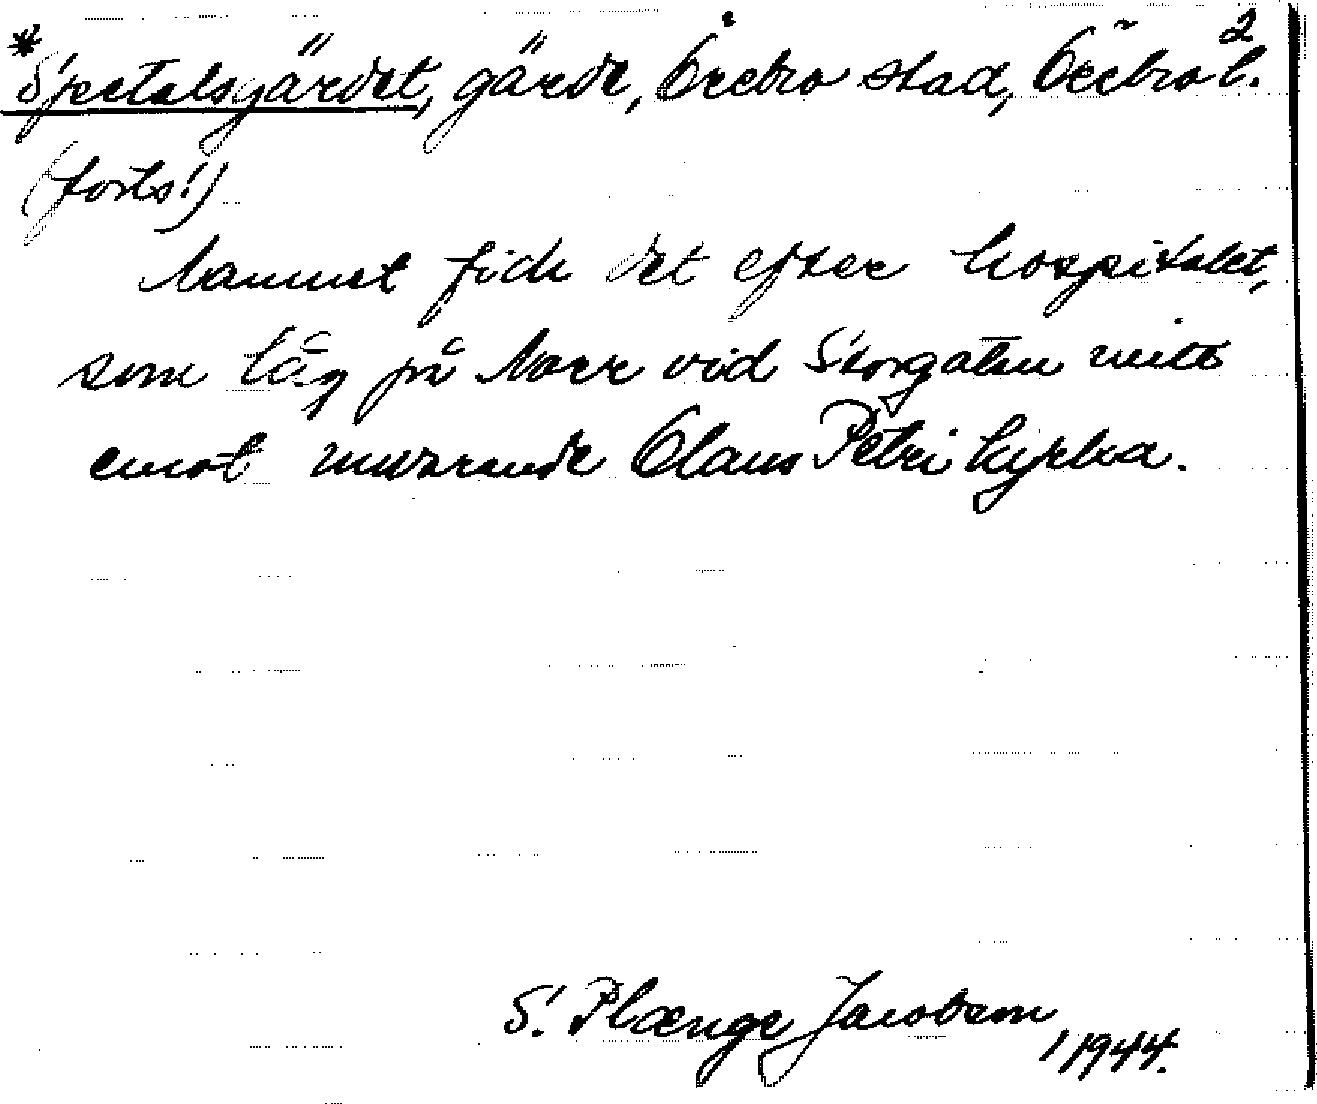 2
*Spetalsgärdet, gärde, Örebro stad, Örebro l.
(forts.)
Namnet fick det efter hospitalet,
som låg på Norr vid Storgatan mitt
emot nuvarande Olaus Petri kyrka.
S. Plænge Jacobson
1944.